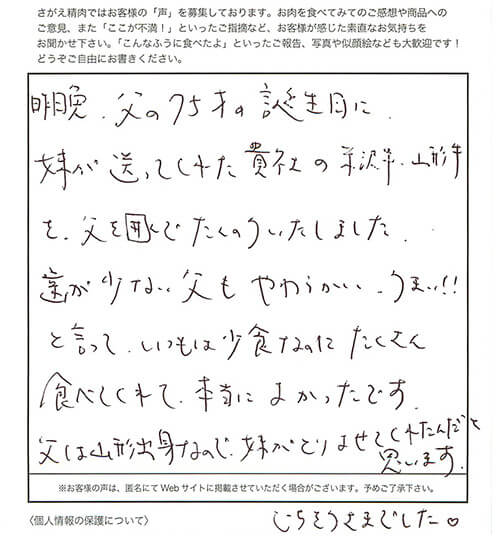 さがえ精肉ではお客様の「声」を募集しております。お肉を食べてみてのご感想や商品への
ご意見、また「ここが不満！」といったご指摘など、お客様が感じた素直なお気持ちを
お聞かせ下さい。「こんなふうに食べたよ」といったご報告、写真や似顔絵なども大歓迎です！
どうぞご自由にお書きください。
昨日晩、父の75才の誕生日に、
妹が送ってくれた貴社の米沢牛、山形牛
を、父を囲んでたんのういたしました。
歯が少ない父もやわらかい、うまい!!
と言って、いつもは少食なのにたくさん
食べてくれて、本当によかったです。
父は山形出身なので、妹がとりよせてくれたんだと
思います。
※お客様の声は、匿名にてWebサイトに掲載させていただく場合がございます。予めご了承下さい。
〈個人情報の保護について〉
ごちそうさまでした♡